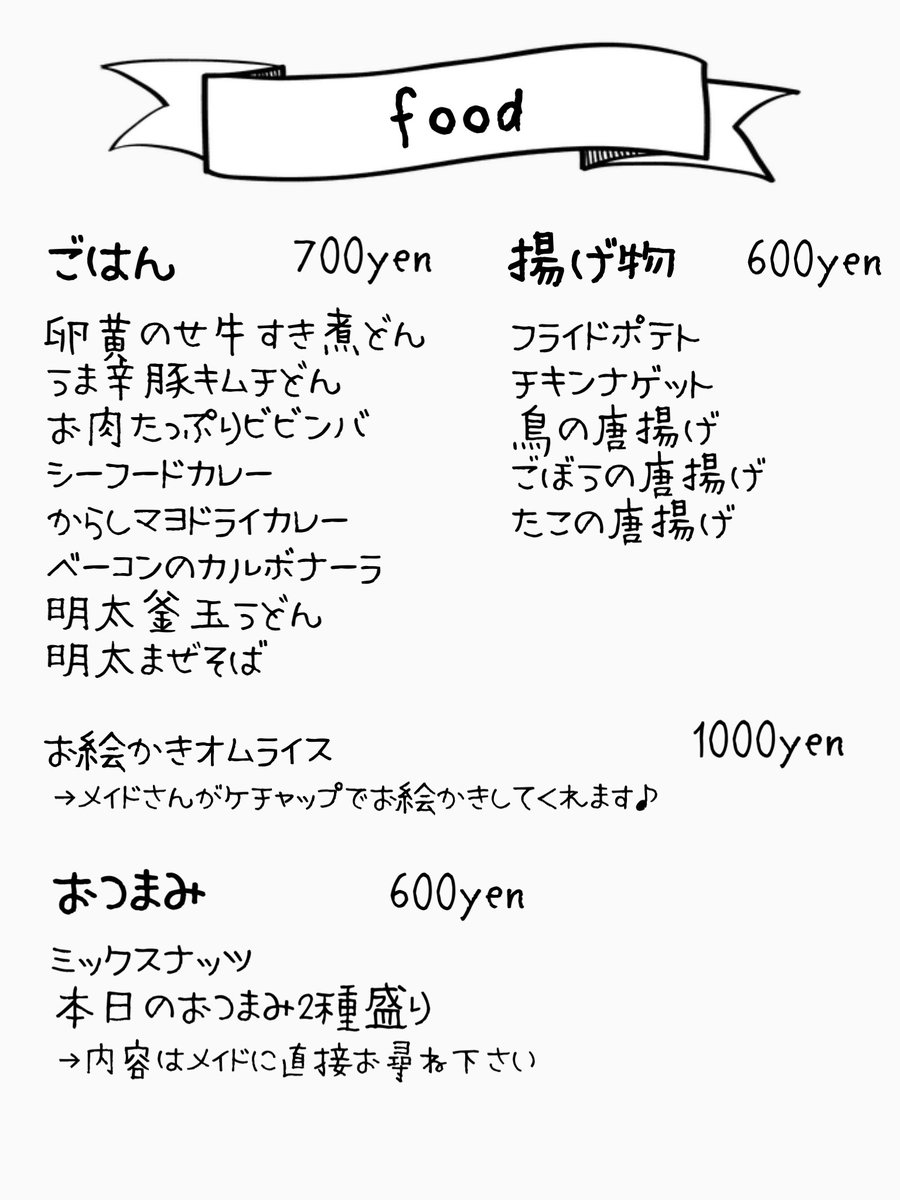 food
ごはん 700yen
卵黄のせ牛すき煮どん
うま辛豚キムチどん
お肉たっぷりビビンバ
シーフードカレー
からしマヨドライカレー
ベーコンのカルボナーラ
明太釜玉うどん
明太まぜそば
揚げ物 600yen
フライドポテト
チキンナゲット
鳥の唐揚げ
ごぼうの唐揚げ
たこの唐揚げ
お絵かきオムライス 1000yen
→メイドさんがケチャップでお絵かきしてくれます♪
おつまみ 600yen
ミックスナッツ
本日のおつまみ2種盛り
→内容はメイドに直接お尋ね下さい